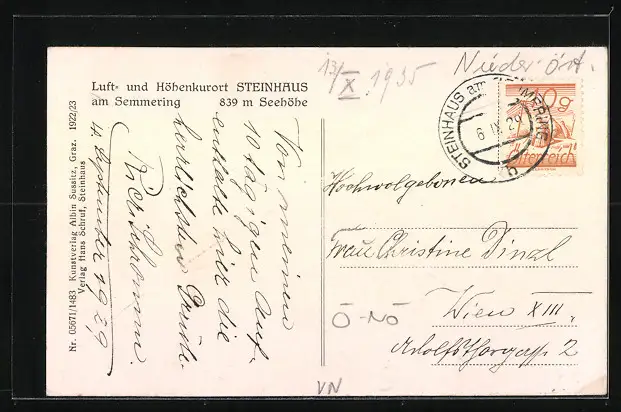 Luft- und Höhenkurort STEINHAUS
am Semmering 839 m Seehöhe
Nr. 05671/1483 Kunstverlag Albin Sussitz, Graz. 1922/23
Verlag Hans Schruf, Steinhaus
Von meinem
10 tägigen Auf-
enthalte hier die
herrlichsten Grüße
4. September 1929
13/X. 1935
Nieder Öst.
STEINHAUS am SEMMERING
6 IX 29
Österreich
Hochwolgeboren
Frau Christine Dinzl
Wien XIII,
Adolfstorgasse 2
Ö-NÖ
VN